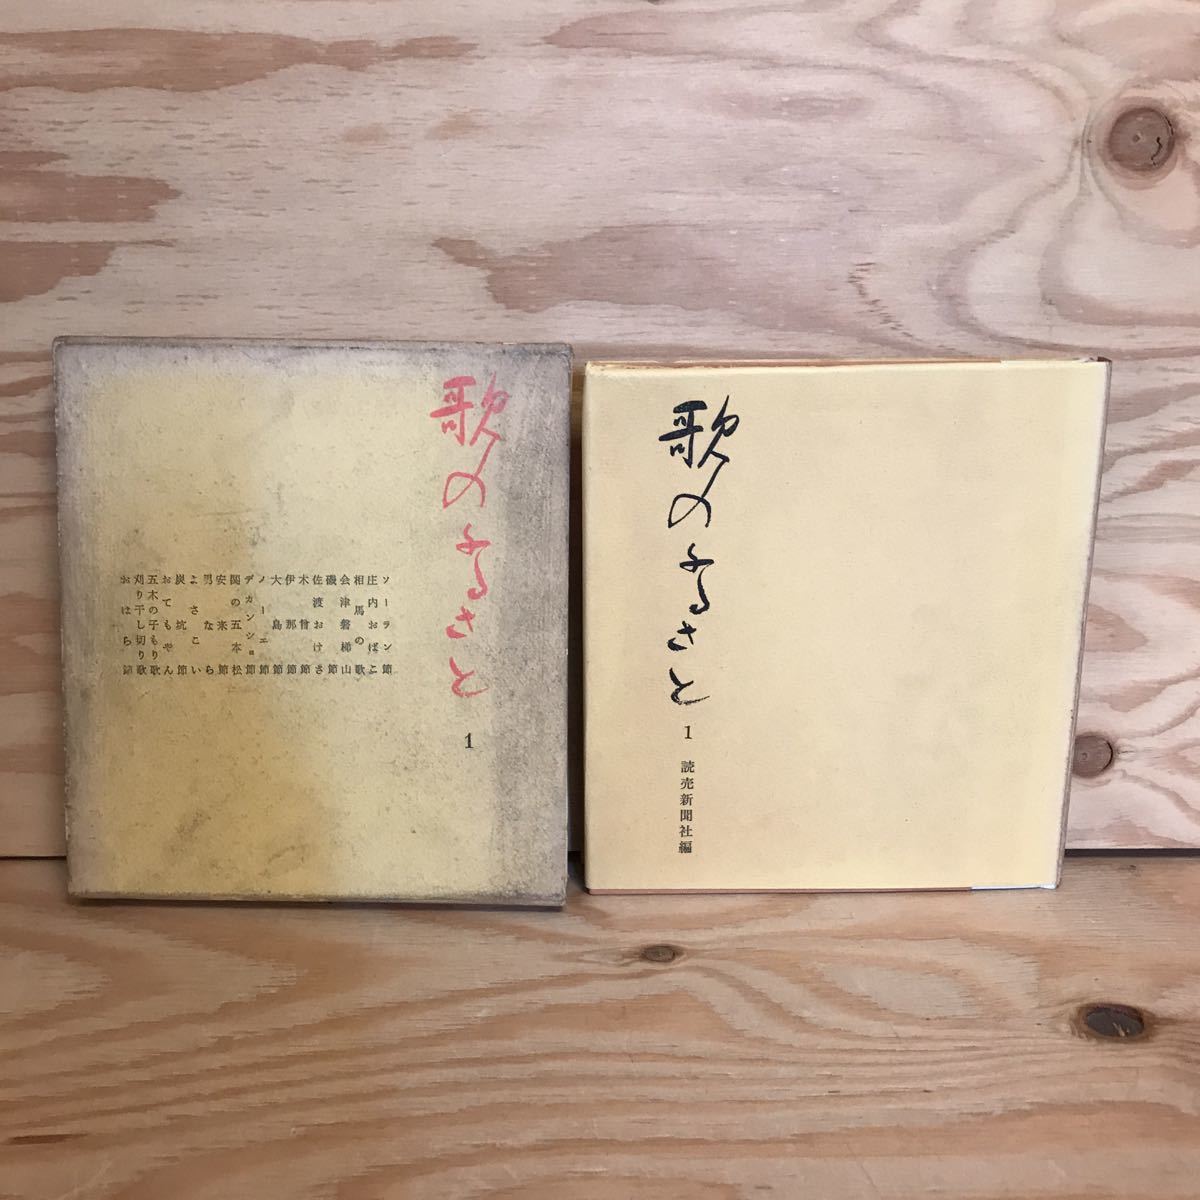 歌のふるさと
1
ソーラン節
庄内おばこ
相馬の歌
会津磐梯山
磯節
佐渡おけさ
木曾節
伊那節
大島節
ノーエ節
デカンショ節
関の五本松
安来節
男なら
よさこい
炭坑節
おてもやん
五木の子もり歌
刈り干し切り歌
おはら節
歌のふるさと
1
読売新聞社編